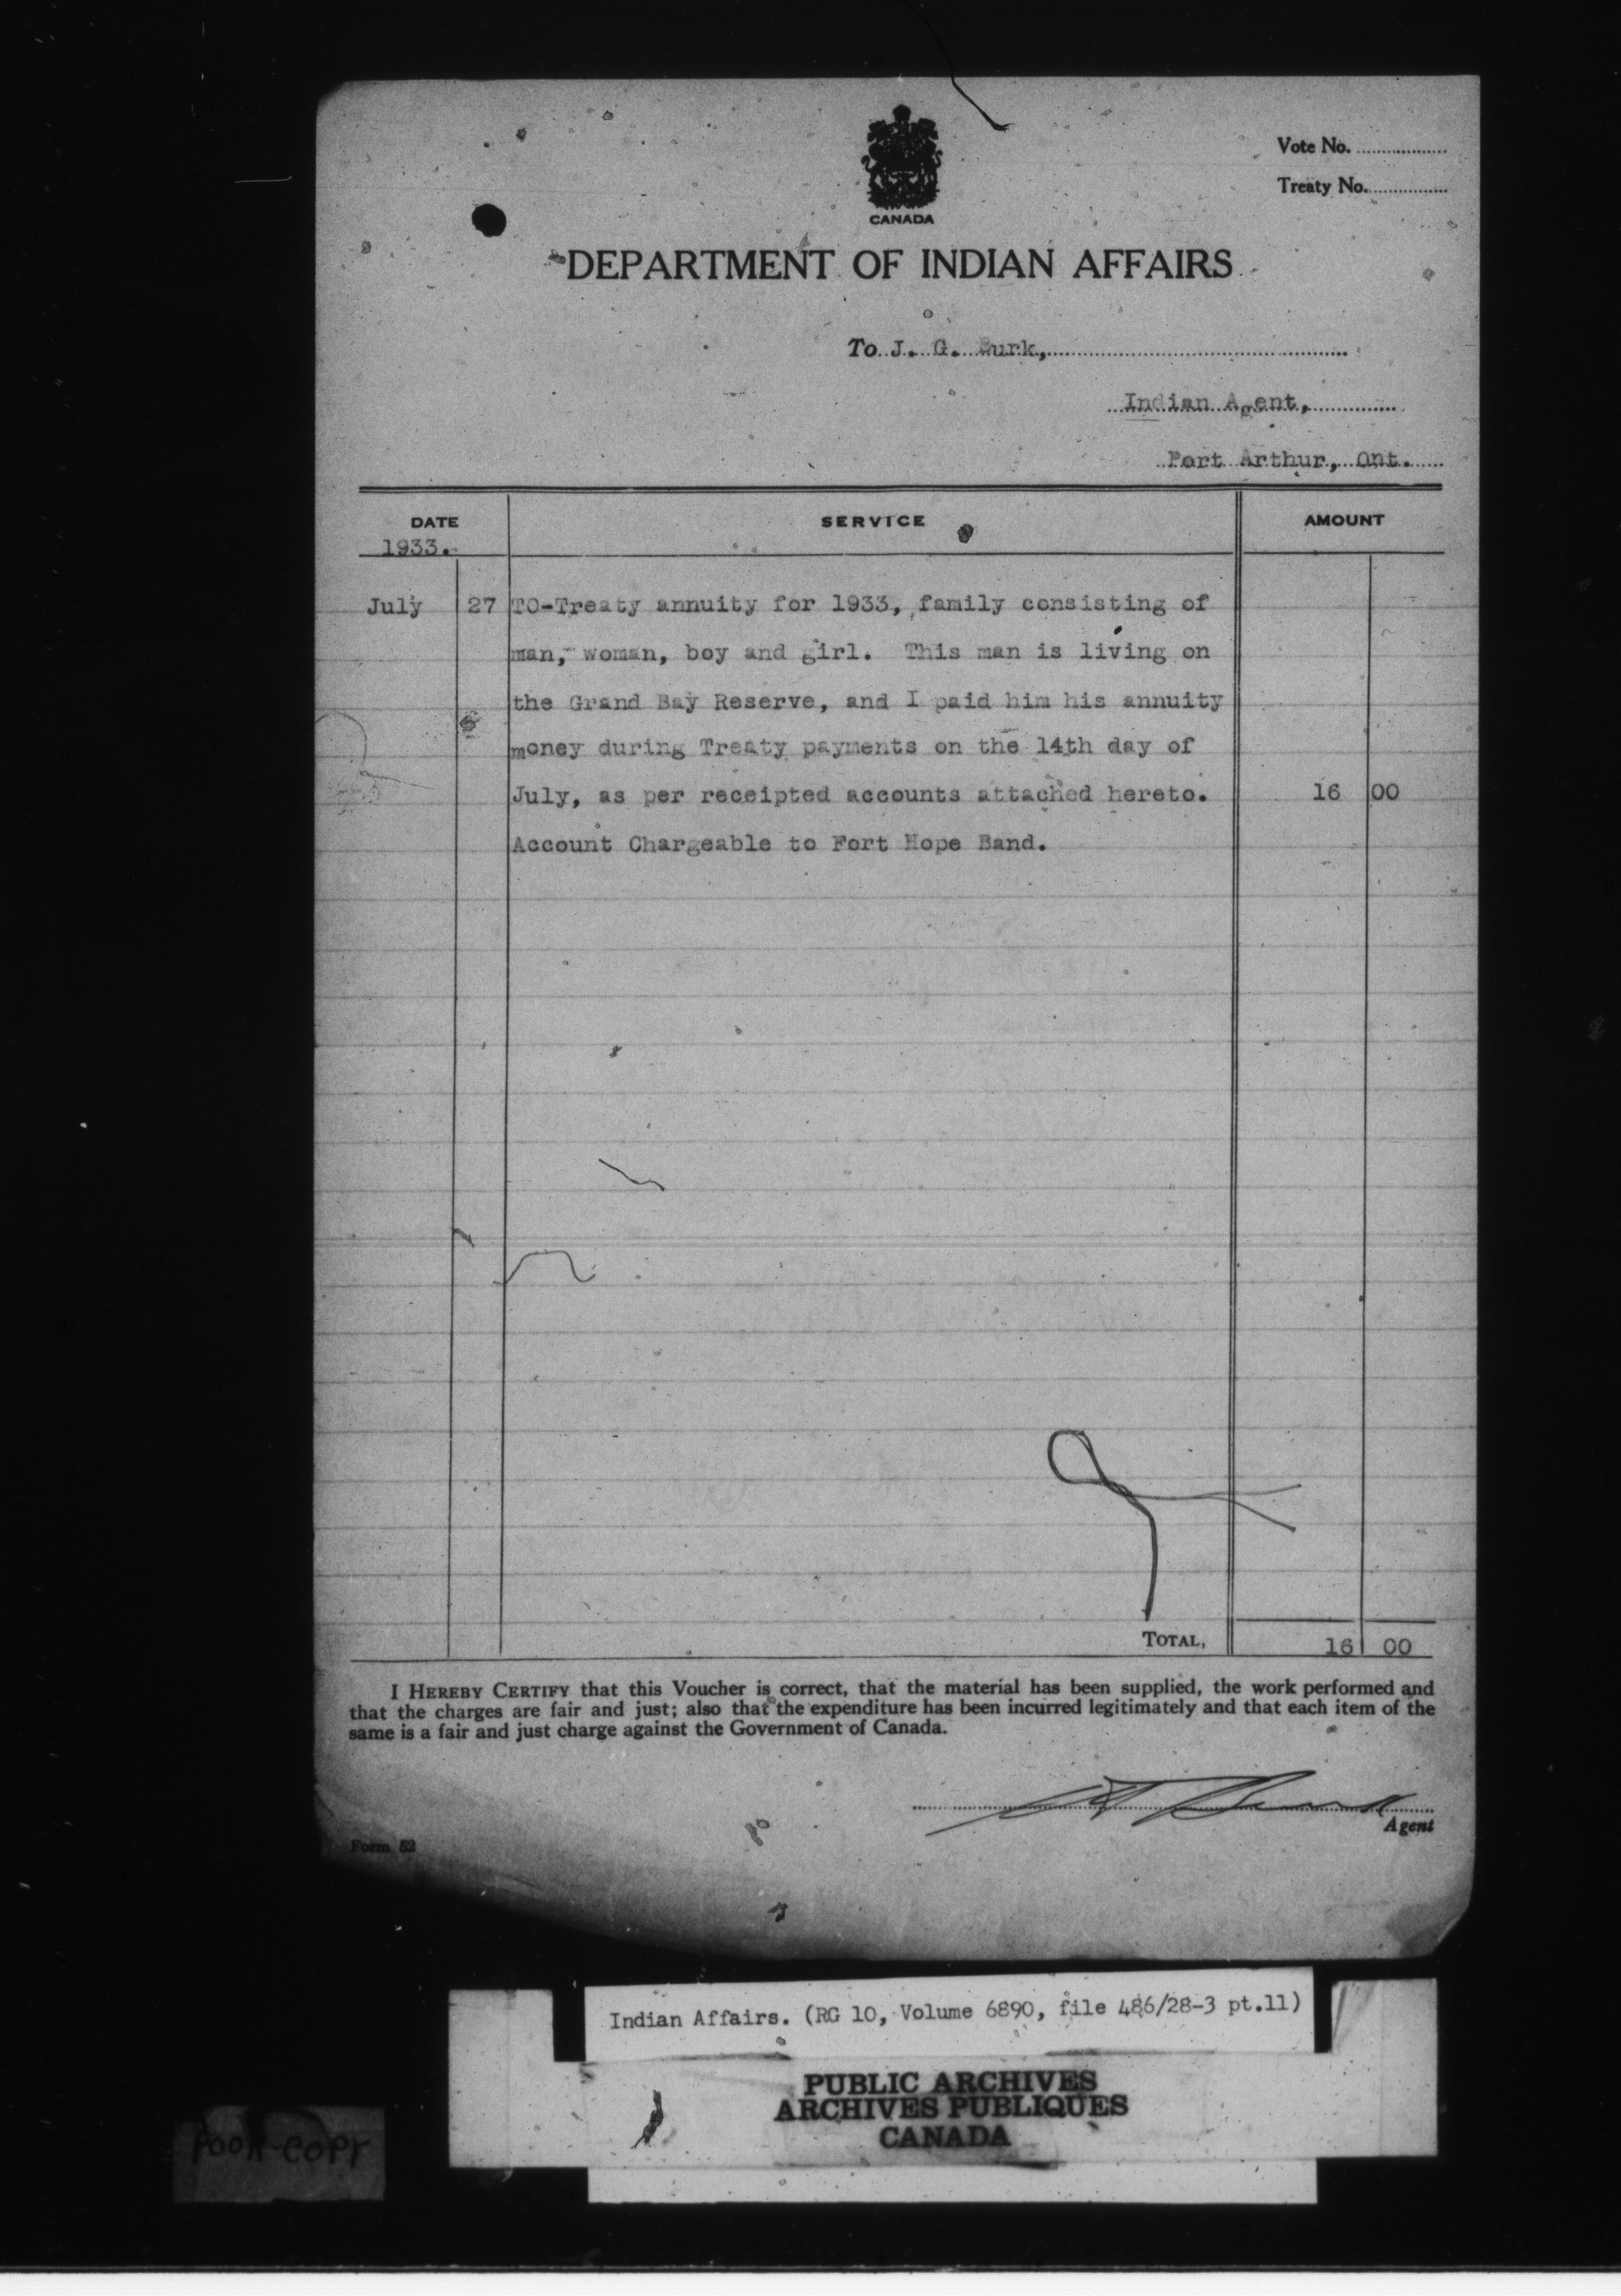 CANADA
Vote No.
Treaty No.
DEPARTMENT OF INDIAN AFFAIRS
To J. G. Burk,
Indian Agent,
Port Arthur, Ont.
DATE SERVICE AMOUNT
1933.
July 27 TO-Treaty annuity for 1933, family consisting of
man, woman, boy and girl. This man is living on
the Grand Bay Reserve, and I paid him his annuity
money during Treaty payments on the 14th day of
July, as per receipted accounts attached hereto. 16 00
Account Chargeable to Fort Hope Band.
TOTAL, 16 00
I HEREBY CERTIFY that this Voucher is correct, that the material has been supplied, the work performed and
that the charges are fair and just; also that the expenditure has been incurred legitimately and that each item of the
same is a fair and just charge against the Government of Canada.
Agent
Form 52
Indian Affairs. (RG 10, Volume 6890, file 486/28-3 pt.11)
PUBLIC ARCHIVES
ARCHIVES PUBLIQUES
CANADA
POOR COPY